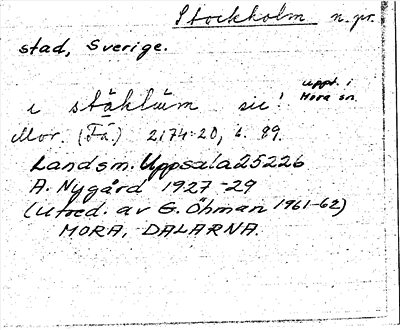 Stockholm n. pr.
stad, Sverige.
uppt. i
Mora sn.
i ståklum sic!
Mor. (Få) 2174:20, s. 89.
Landsm. Uppsala 25226
A. Nygård 1927-29
(Utred. av G. Öhman 1961-62)
MORA, DALARNA.